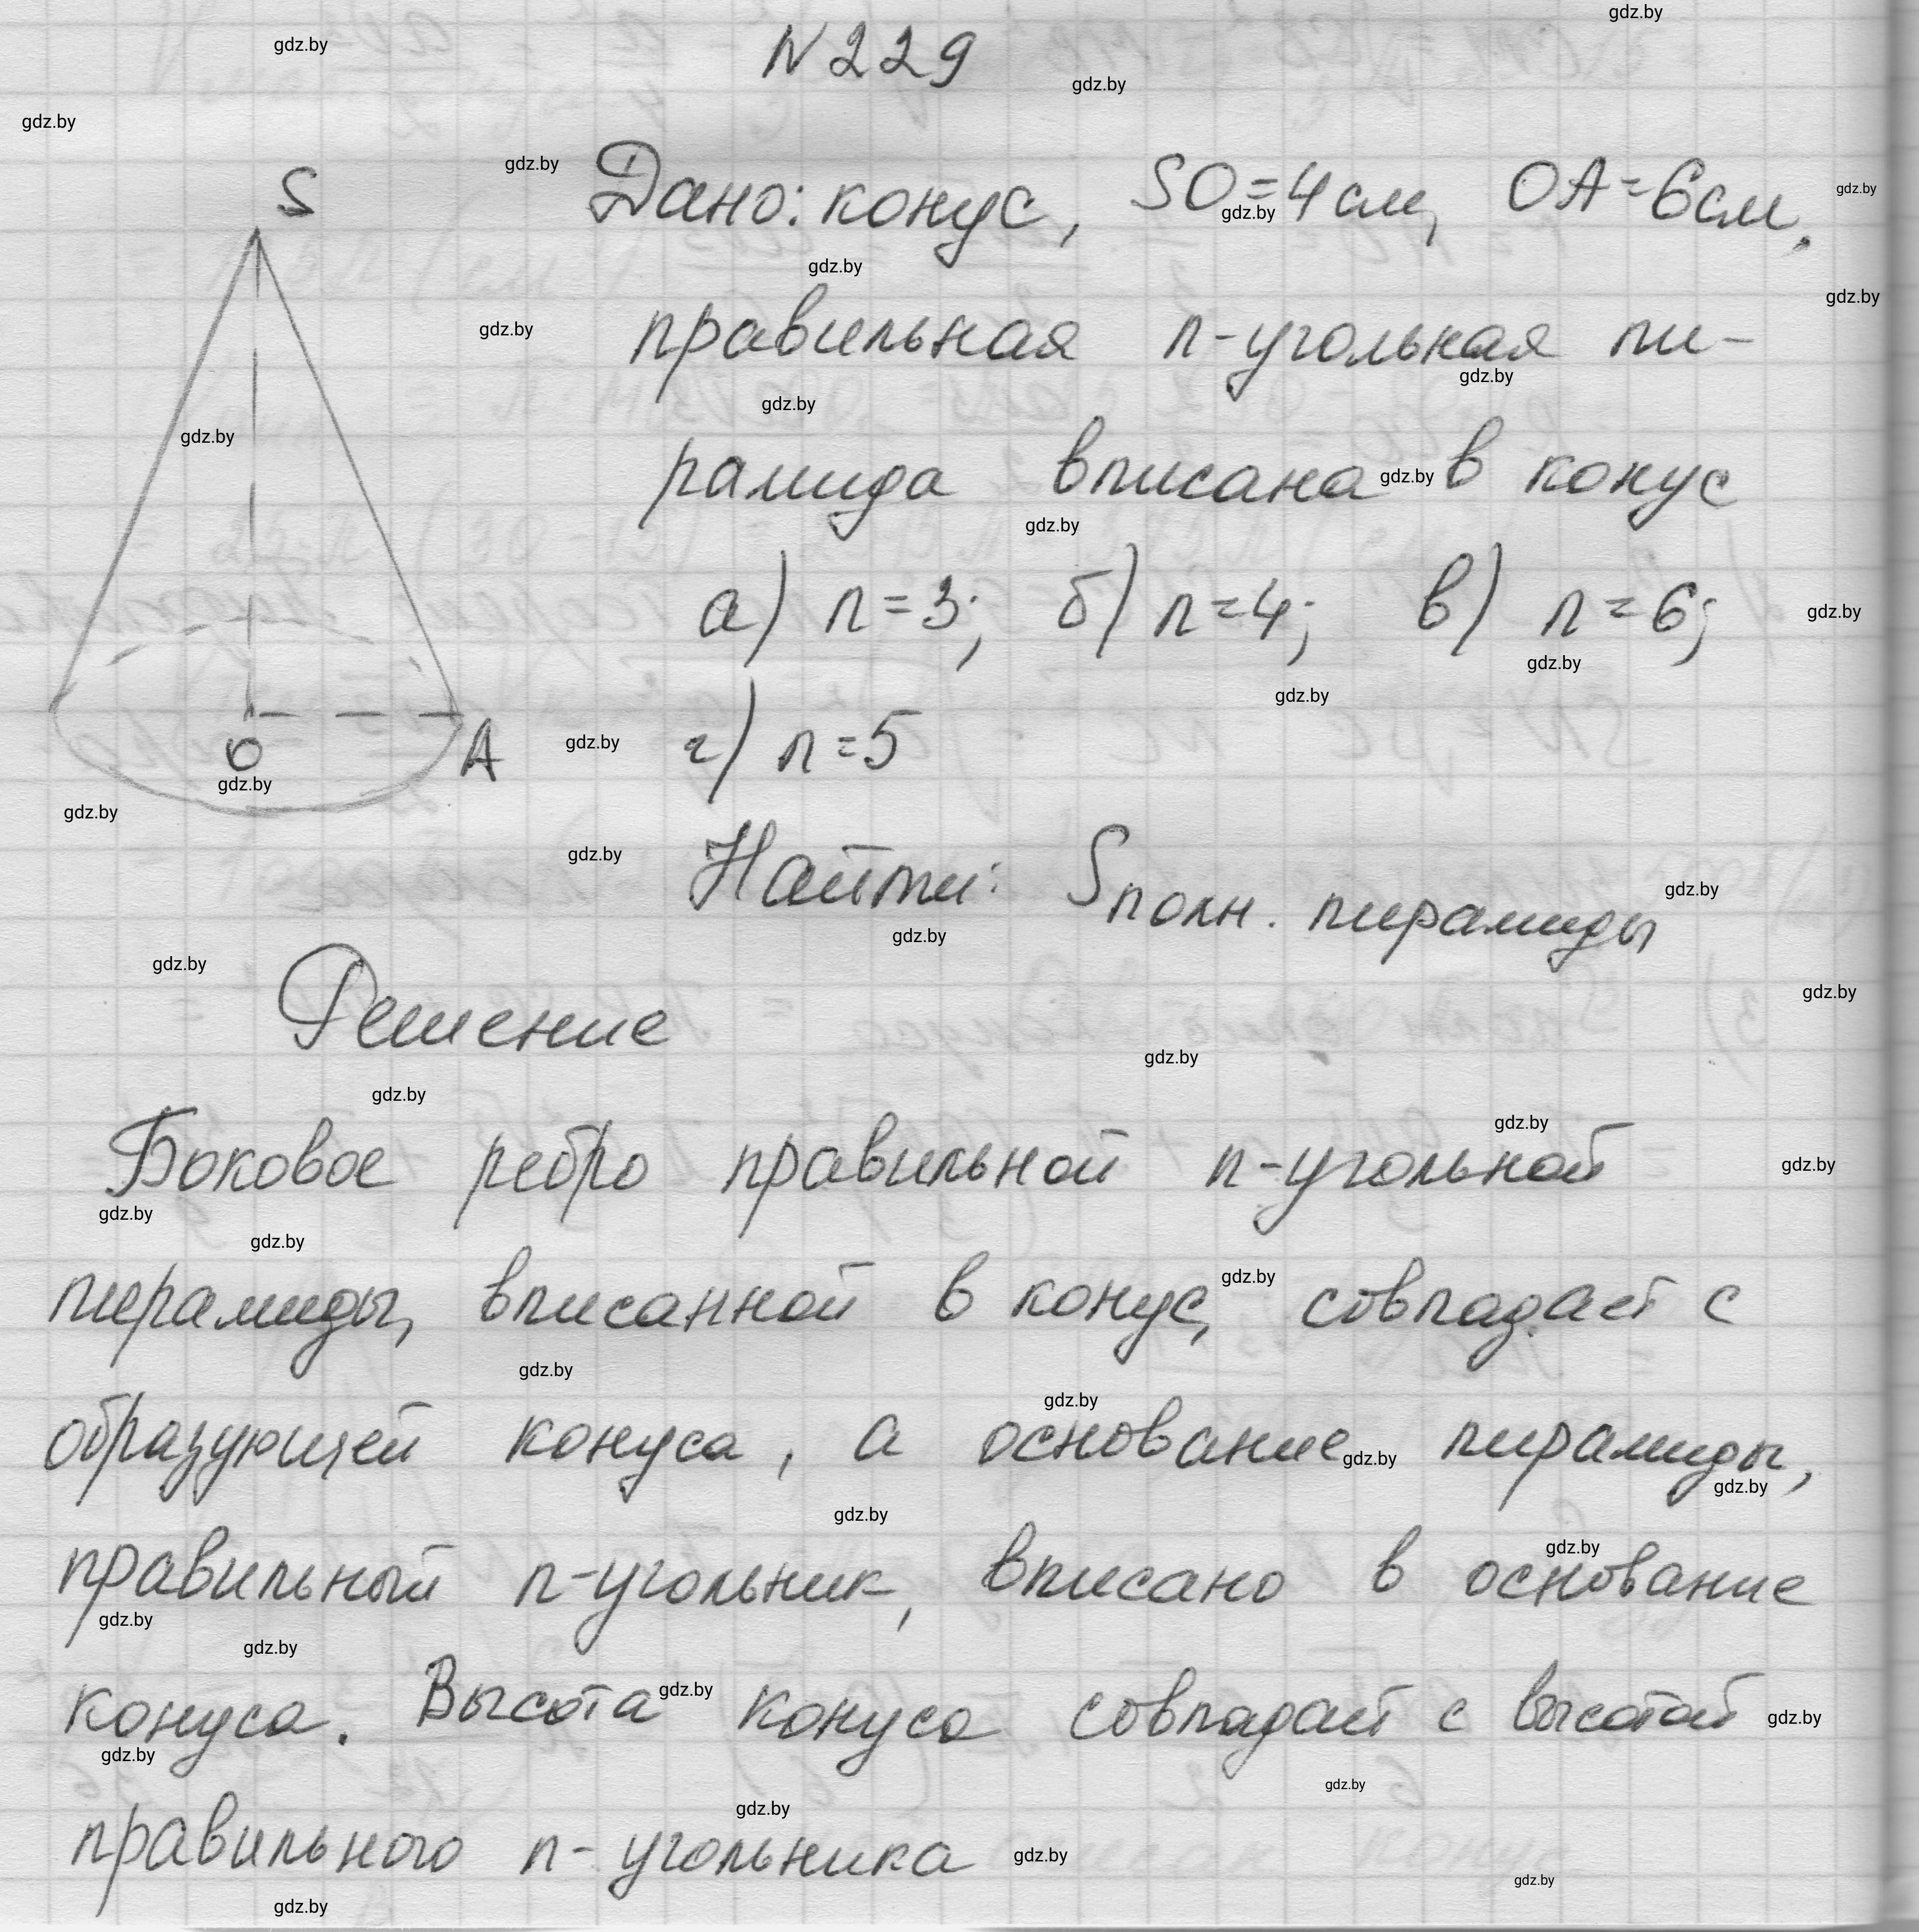 N229
S
Дано: конус, SO=4см, OA=6см,
правильная n-угольная пи-
рамида вписана в конус
а) n=3; б) n=4; в) n=6;
O
A
г) n=5
Найти: Sполн. пирамиды
Решение
Боковое ребро правильной n-угольной
пирамиды, вписанной в конус, совпадает с
образующей конуса, а основание пирамиды,
правильный n-угольник, вписано в основание
конуса. Высота конуса совпадает с высотой
правильного n-угольника
gdz.by